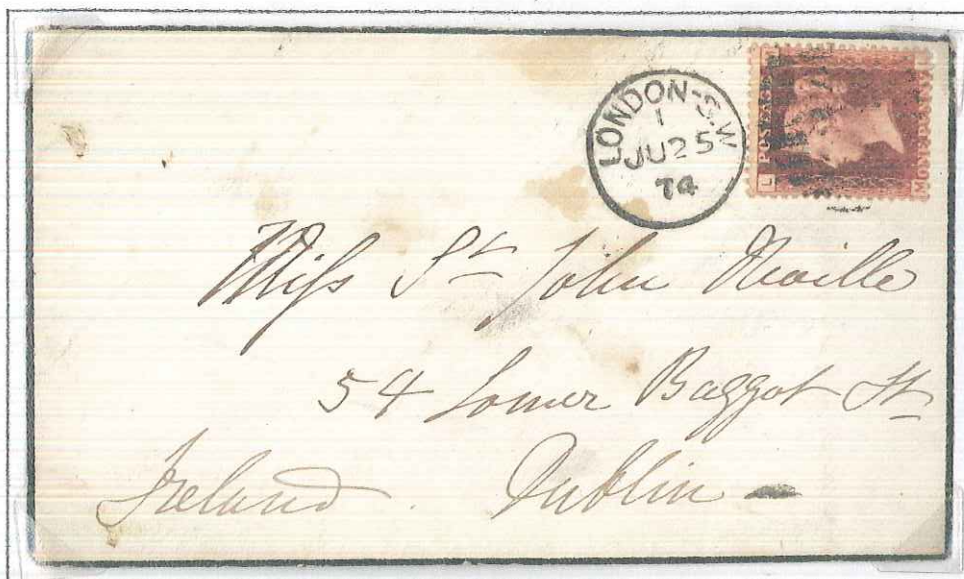 LONDON-S.W
1
JU 25
74
POSTAGE
L
Miſs St John Neville
54 Lower Baggot St
Ireland . Dublin